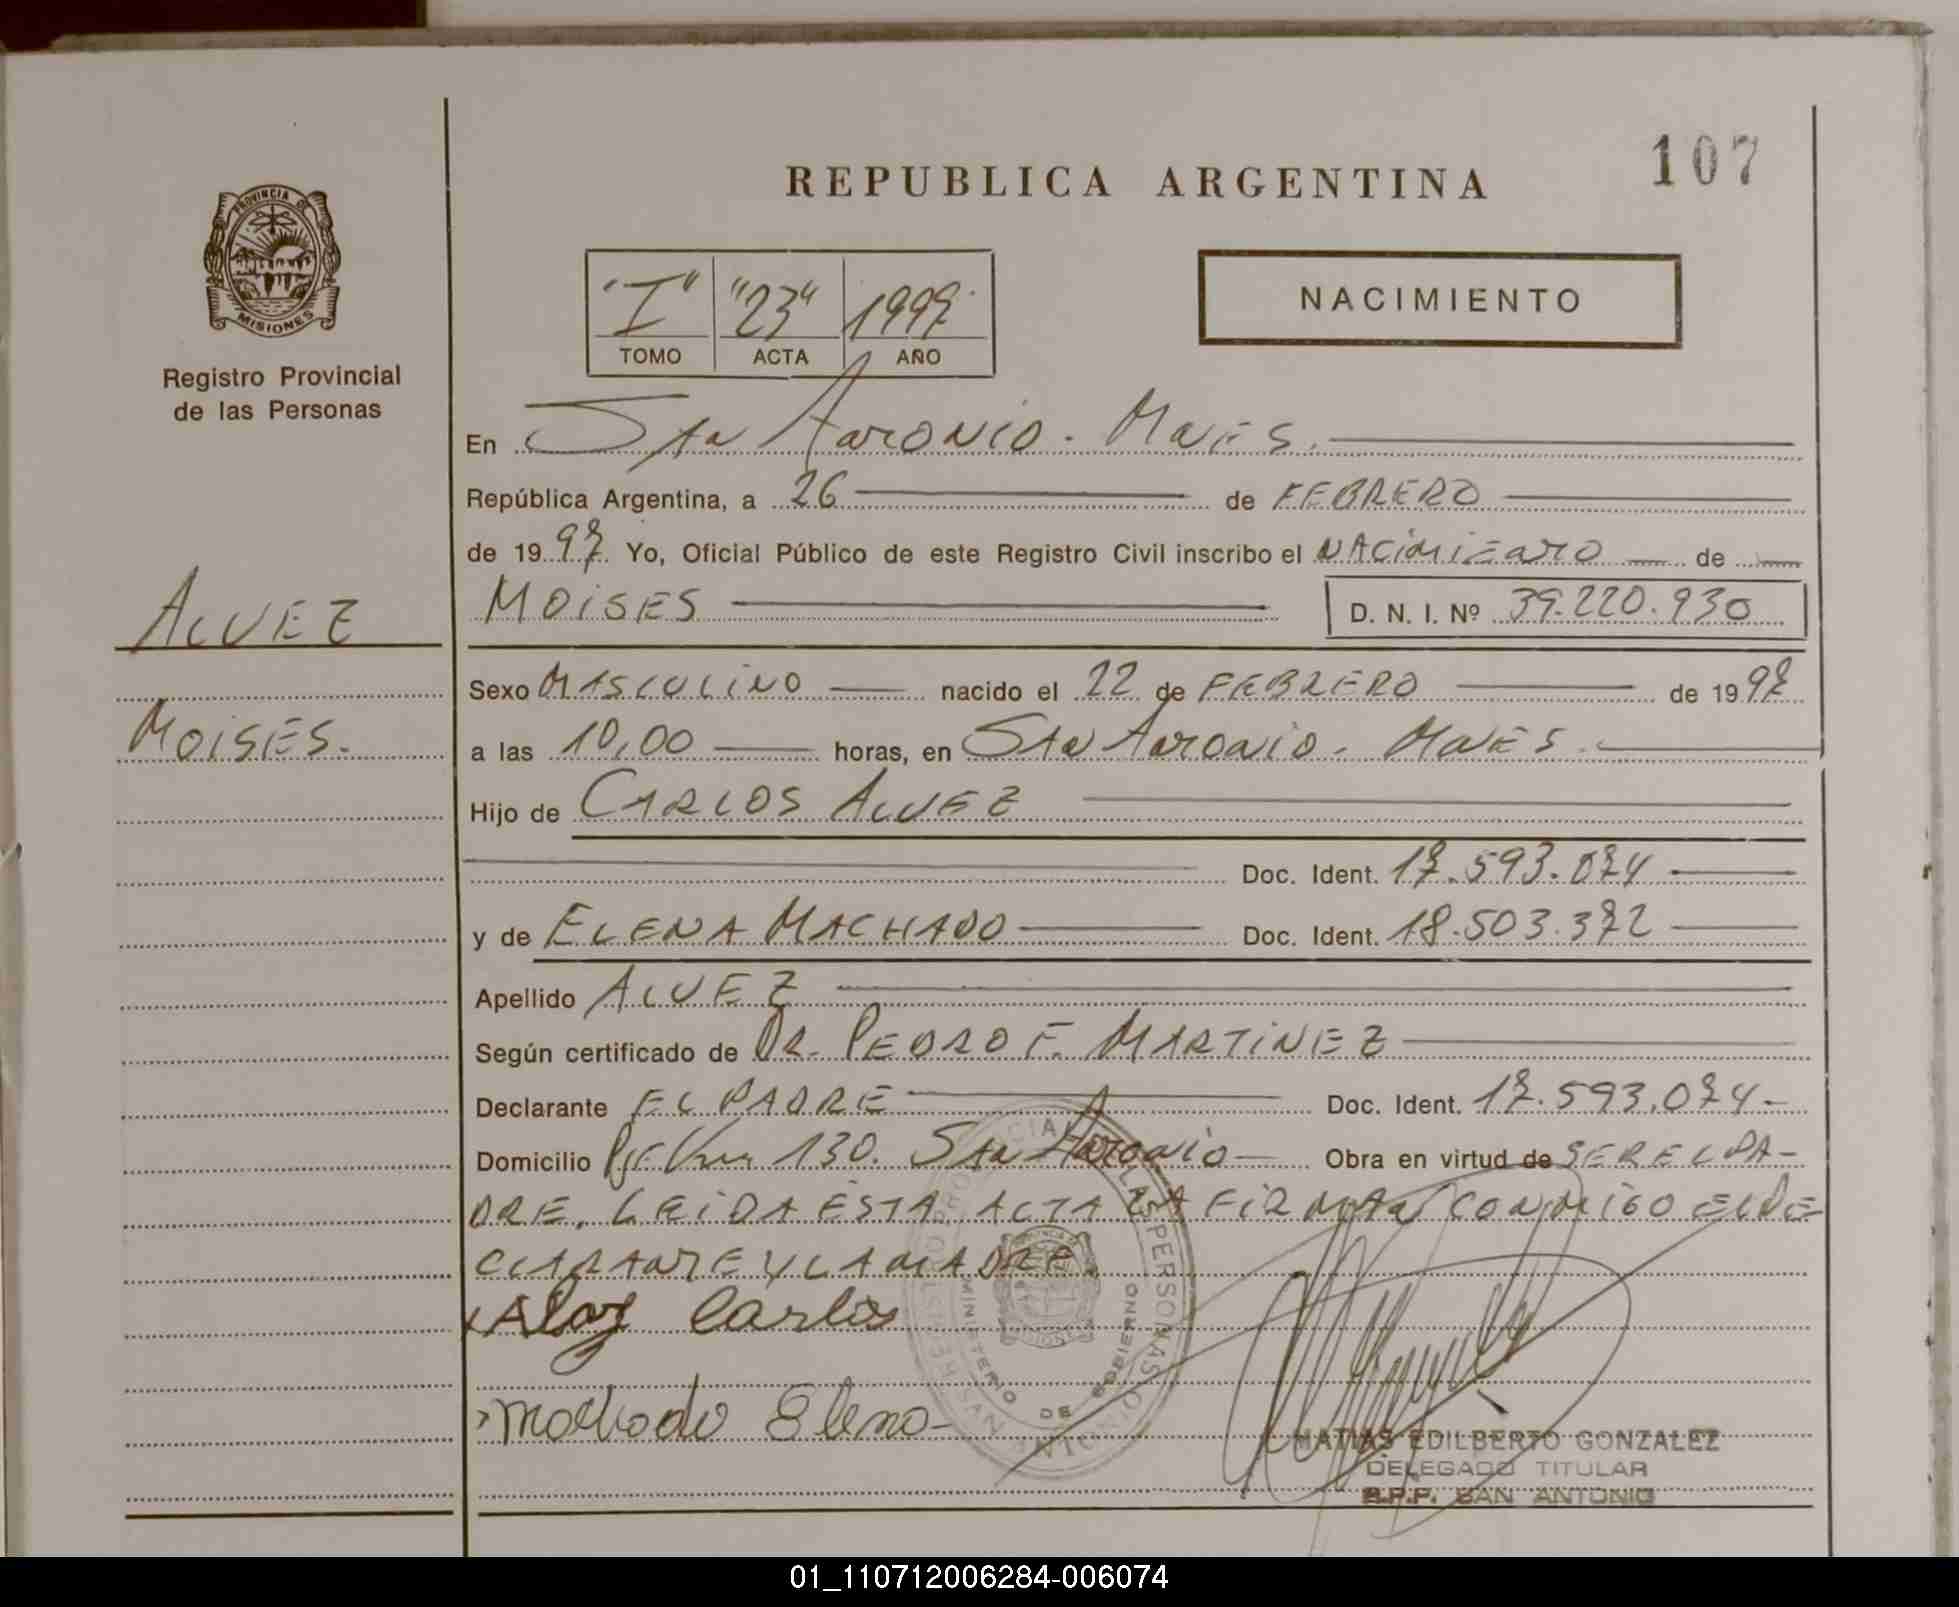 107
REPUBLICA ARGENTINA
PROVINCIA DE
MISIONES
Registro Provincial
de las Personas
"I" "23" 1997
TOMO ACTA AÑO
NACIMIENTO
En San Antonio - Mnes.
República Argentina, a 26 de FEBRERO
de 1997. Yo, Oficial Público de este Registro Civil inscribo el NACIMIENTO de
ALVEZ
MOISES
MOISES D. N. I. Nº 39.220.930
Sexo MASCULINO nacido el 22 de FEBRERO de 1997
a las 10,00 horas, en San Antonio - Mnes.
Hijo de CARLOS ALVEZ
Doc. Ident. 17.593.074
y de ELENA MACHADO Doc. Ident. 18.503.372
Apellido ALVEZ
Según certificado de DR. PEDRO F. MARTINEZ
Declarante EL PADRE Doc. Ident. 17.593.074-
Domicilio 130. San Antonio Obra en virtud de SER EL PA-
DRE. LEIDA ESTA ACTA LA FIRMAN CONMIGO EL DE
CLARANTE Y LA MADRE.
Carlos
Machado Elena
REGISTRO PROVINCIAL DE LAS PERSONAS
MINISTERIO DE GOBIERNO
SAN ANTONIO
MATIAS EDILBERTO GONZALEZ
DELEGADO TITULAR
R.P.P. SAN ANTONIO
01_110712006284-006074